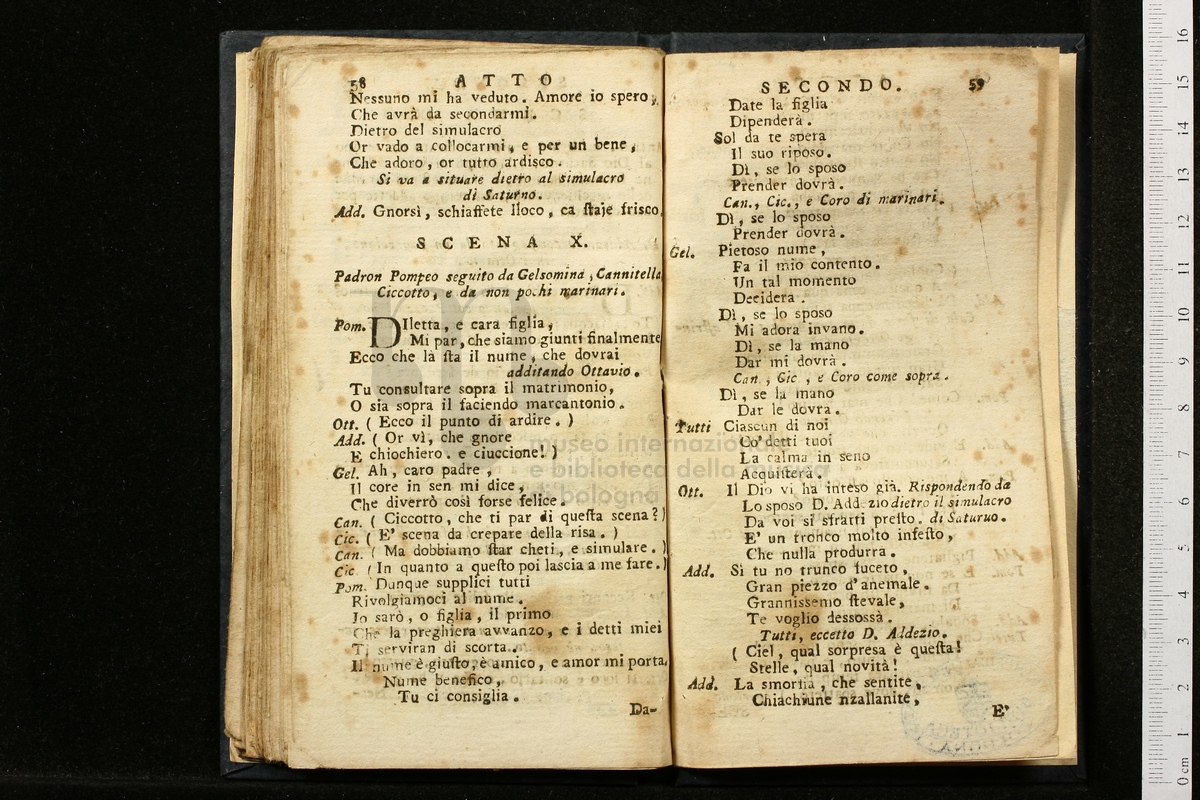 58 ATTO
Nessuno mi ha veduto. Amore io spero,
Che avrà da secondarmi.
Dietro del simulacro
Or vado a collocarmi, e per un bene,
Che adoro, or tutto ardisco.
Si va a situare dietro al simulacro
di Saturno.
Add. Gnorsì, schiaffete lloco, ca staje frisco.
SCENA X.
Padron Pompeo seguito da Gelsomina, Cannitella
Ciccotto, e da non pochi marinari.
Pom. DIletta, e cara figlia,
Mi par, che siamo giunti finalmente
Ecco che là sta il nume, che dovrai
additando Ottavio.
Tu consultare sopra il matrimonio,
O sia sopra il faciendo marcantonio.
Ott. ( Ecco il punto di ardire. )
Add. ( Or vì, che gnore
E chiochiero. e ciuccione! )
Gel. Ah, caro padre,
Il core in sen mi dice,
Che diverrò così forse felice.
Can. ( Ciccotto, che ti par di questa scena?)
Cic. ( E' scena da crepare della risa. )
Can. ( Ma dobbiamo star cheti, e simulare. )
Cic ( In quanto a questo poi lascia a me fare.)
Pom. Dunque supplici tutti
Rivolgiamoci al nume.
Io sarò, o figlia, il primo
Che la preghiera avvanzo, e i detti miei
Ti serviran di scorta.
Il nume è giusto, è amico, e amor mi porta.
Nume benefico,
Tu ci consiglia.
Da-
SECONDO. 59
Date la figlia
Dipenderà.
Sol da te spera
Il suo riposo.
Dì, se lo sposo
Prender dovrà.
Can., Cic., e Coro di marinari.
Dì, se lo sposo
Prender dovrà.
Gel. Pietoso nume,
Fa il mio contento.
Un tal momento
Deciderà.
Dì, se lo sposo
Mi adora invano.
Dì, se la mano
Dar mi dovrà.
Can., Cic., e Coro come sopra.
Dì, se la mano
Dar le dovra.
Tutti Ciascun di noi
Co' detti tuoi
La calma in seno
Acquisterà.
Ott. Il Dio vi ha inteso già. Rispondendo da
Lo sposo D. Addezio dietro il simulacro
Da voi si sfratti presto. di Saturuo.
E' un tronco molto infesto,
Che nulla produrra.
Add. Sì tu no trunco luceto,
Gran piezzo d'anemale.
Grannissemo stevale,
Te voglio dessossà.
Tutti, eccetto D. Aldezio.
( Ciel, qual sorpresa è questa!
Stelle, qual novità!
Add. La smorfia, che sentite,
Chiachiune nzallanite,
E'
museo internazio
e biblioteca della musica
di bologna
0 cm 1 2 3 4 5 6 7 8 9 10 11 12 13 14 15 16